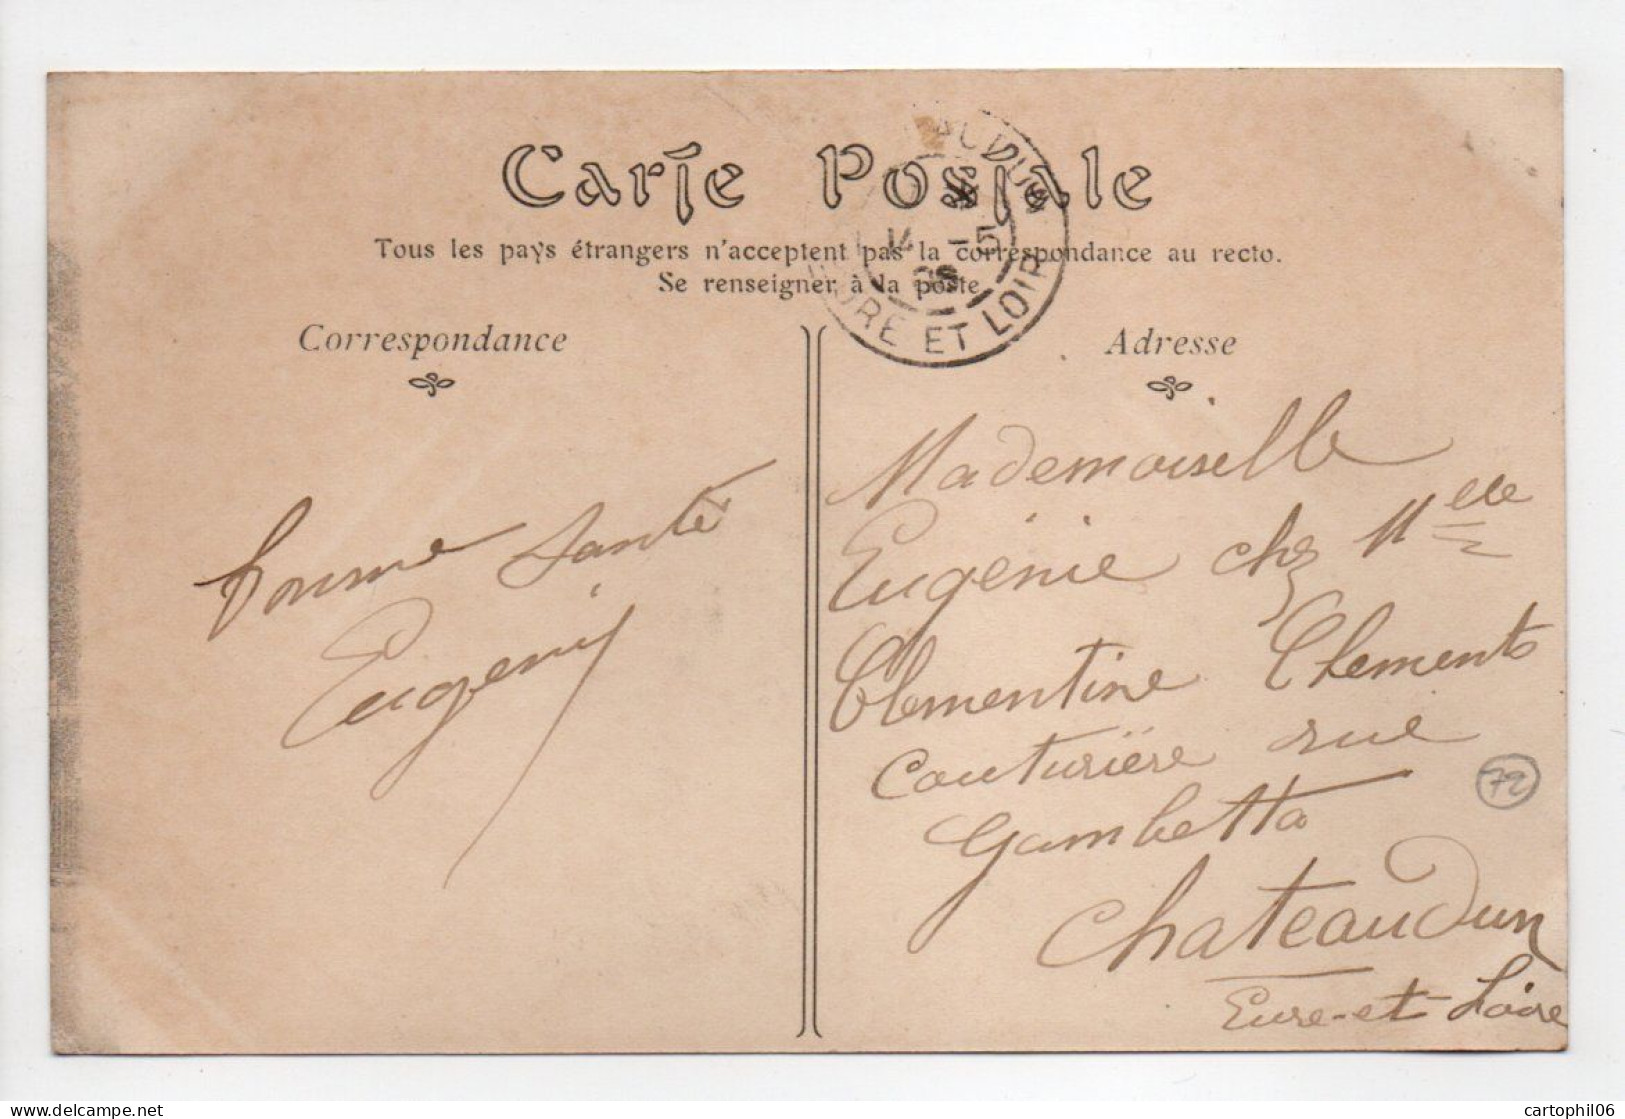 Carte Postale
Tous les pays étrangers n'acceptent pas la correspondance au recto.
Se renseigner à la poste
EURE ET LOIR
Correspondance
bonne santé
Eugénie
Adresse
Mademoiselle
Eugénie chez Melle
Clementine Clements
Couturiëre rue
Gambetta
Chateaudun
Eure-et-Loire
72
cartophil06